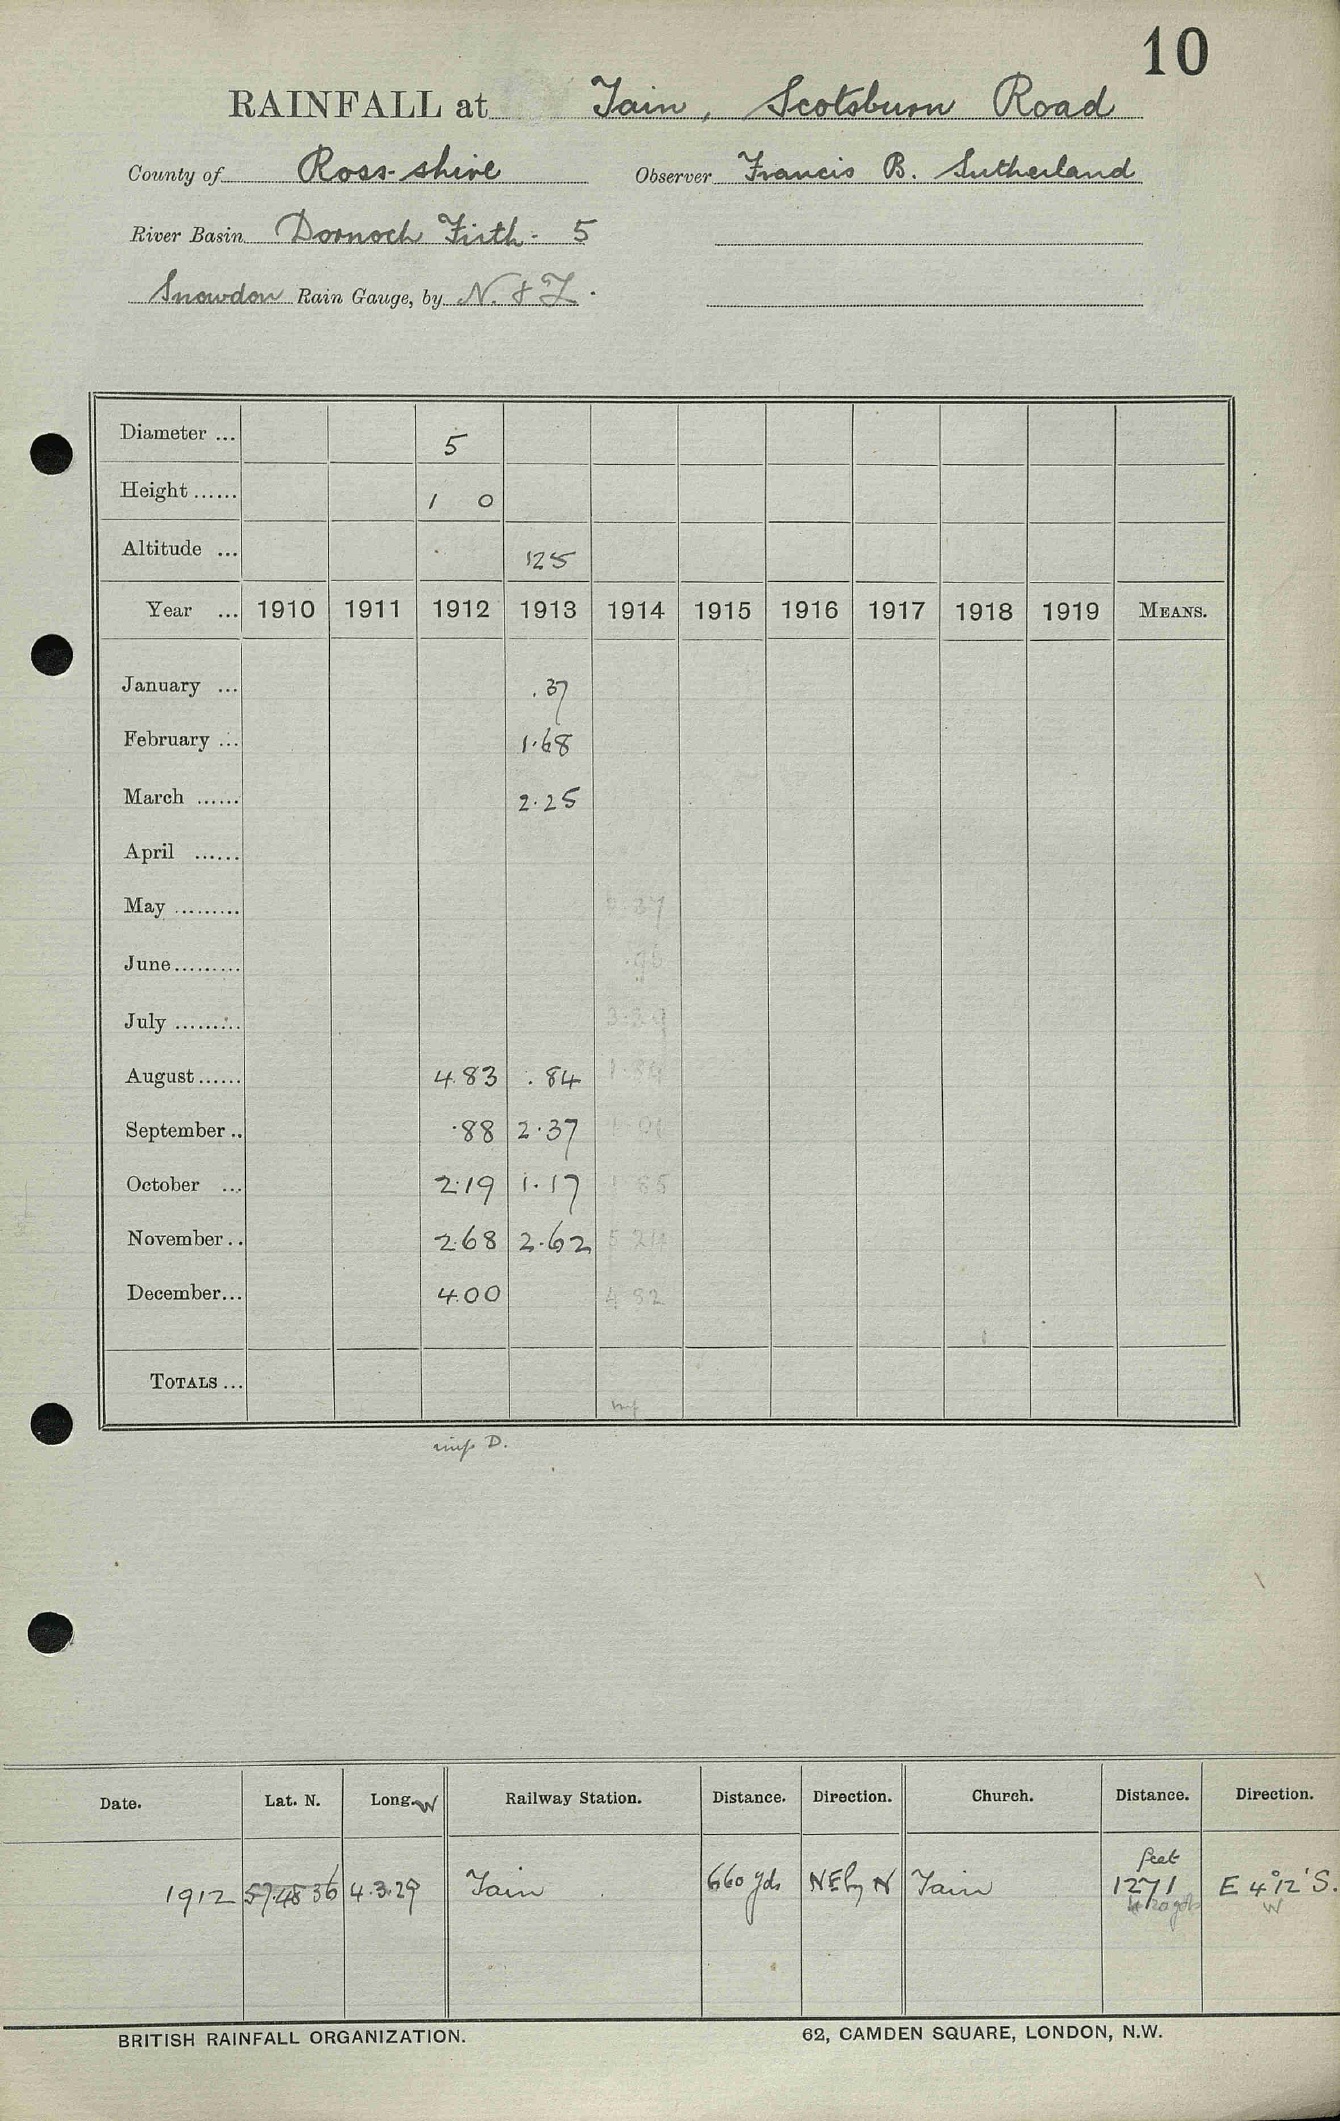 10
RAINFALL at Tain, Scotsburn Road
County of Ross-shire Observer Francis B. Sutherland
River Basin Dornoch Firth - 5
Snowdon Rain Gauge, by N. & Z.
Diameter ... 5
Height ...... 1 0
Altitude ... 125
Year ... 1910 1911 1912 1913 1914 1915 1916 1917 1918 1919 MEANS.
January ... .37
February ... 1.68
March ...... 2.25
April ......
May .........
June.........
July .........
August...... 4.83 .84
September .. .88 2.37
October ... 2.19 1.17
November .. 2.68 2.62
December... 4.00
TOTALS ...
imp D.
Date. Lat. N. Long. W Railway Station. Distance. Direction. Church. Distance. Direction.
feet
1912 57.48 36 4.3.29 Tain 660 yds NE by N Tain 1271 E 4° 12' S.
W
BRITISH RAINFALL ORGANIZATION. 62, CAMDEN SQUARE, LONDON, N.W.